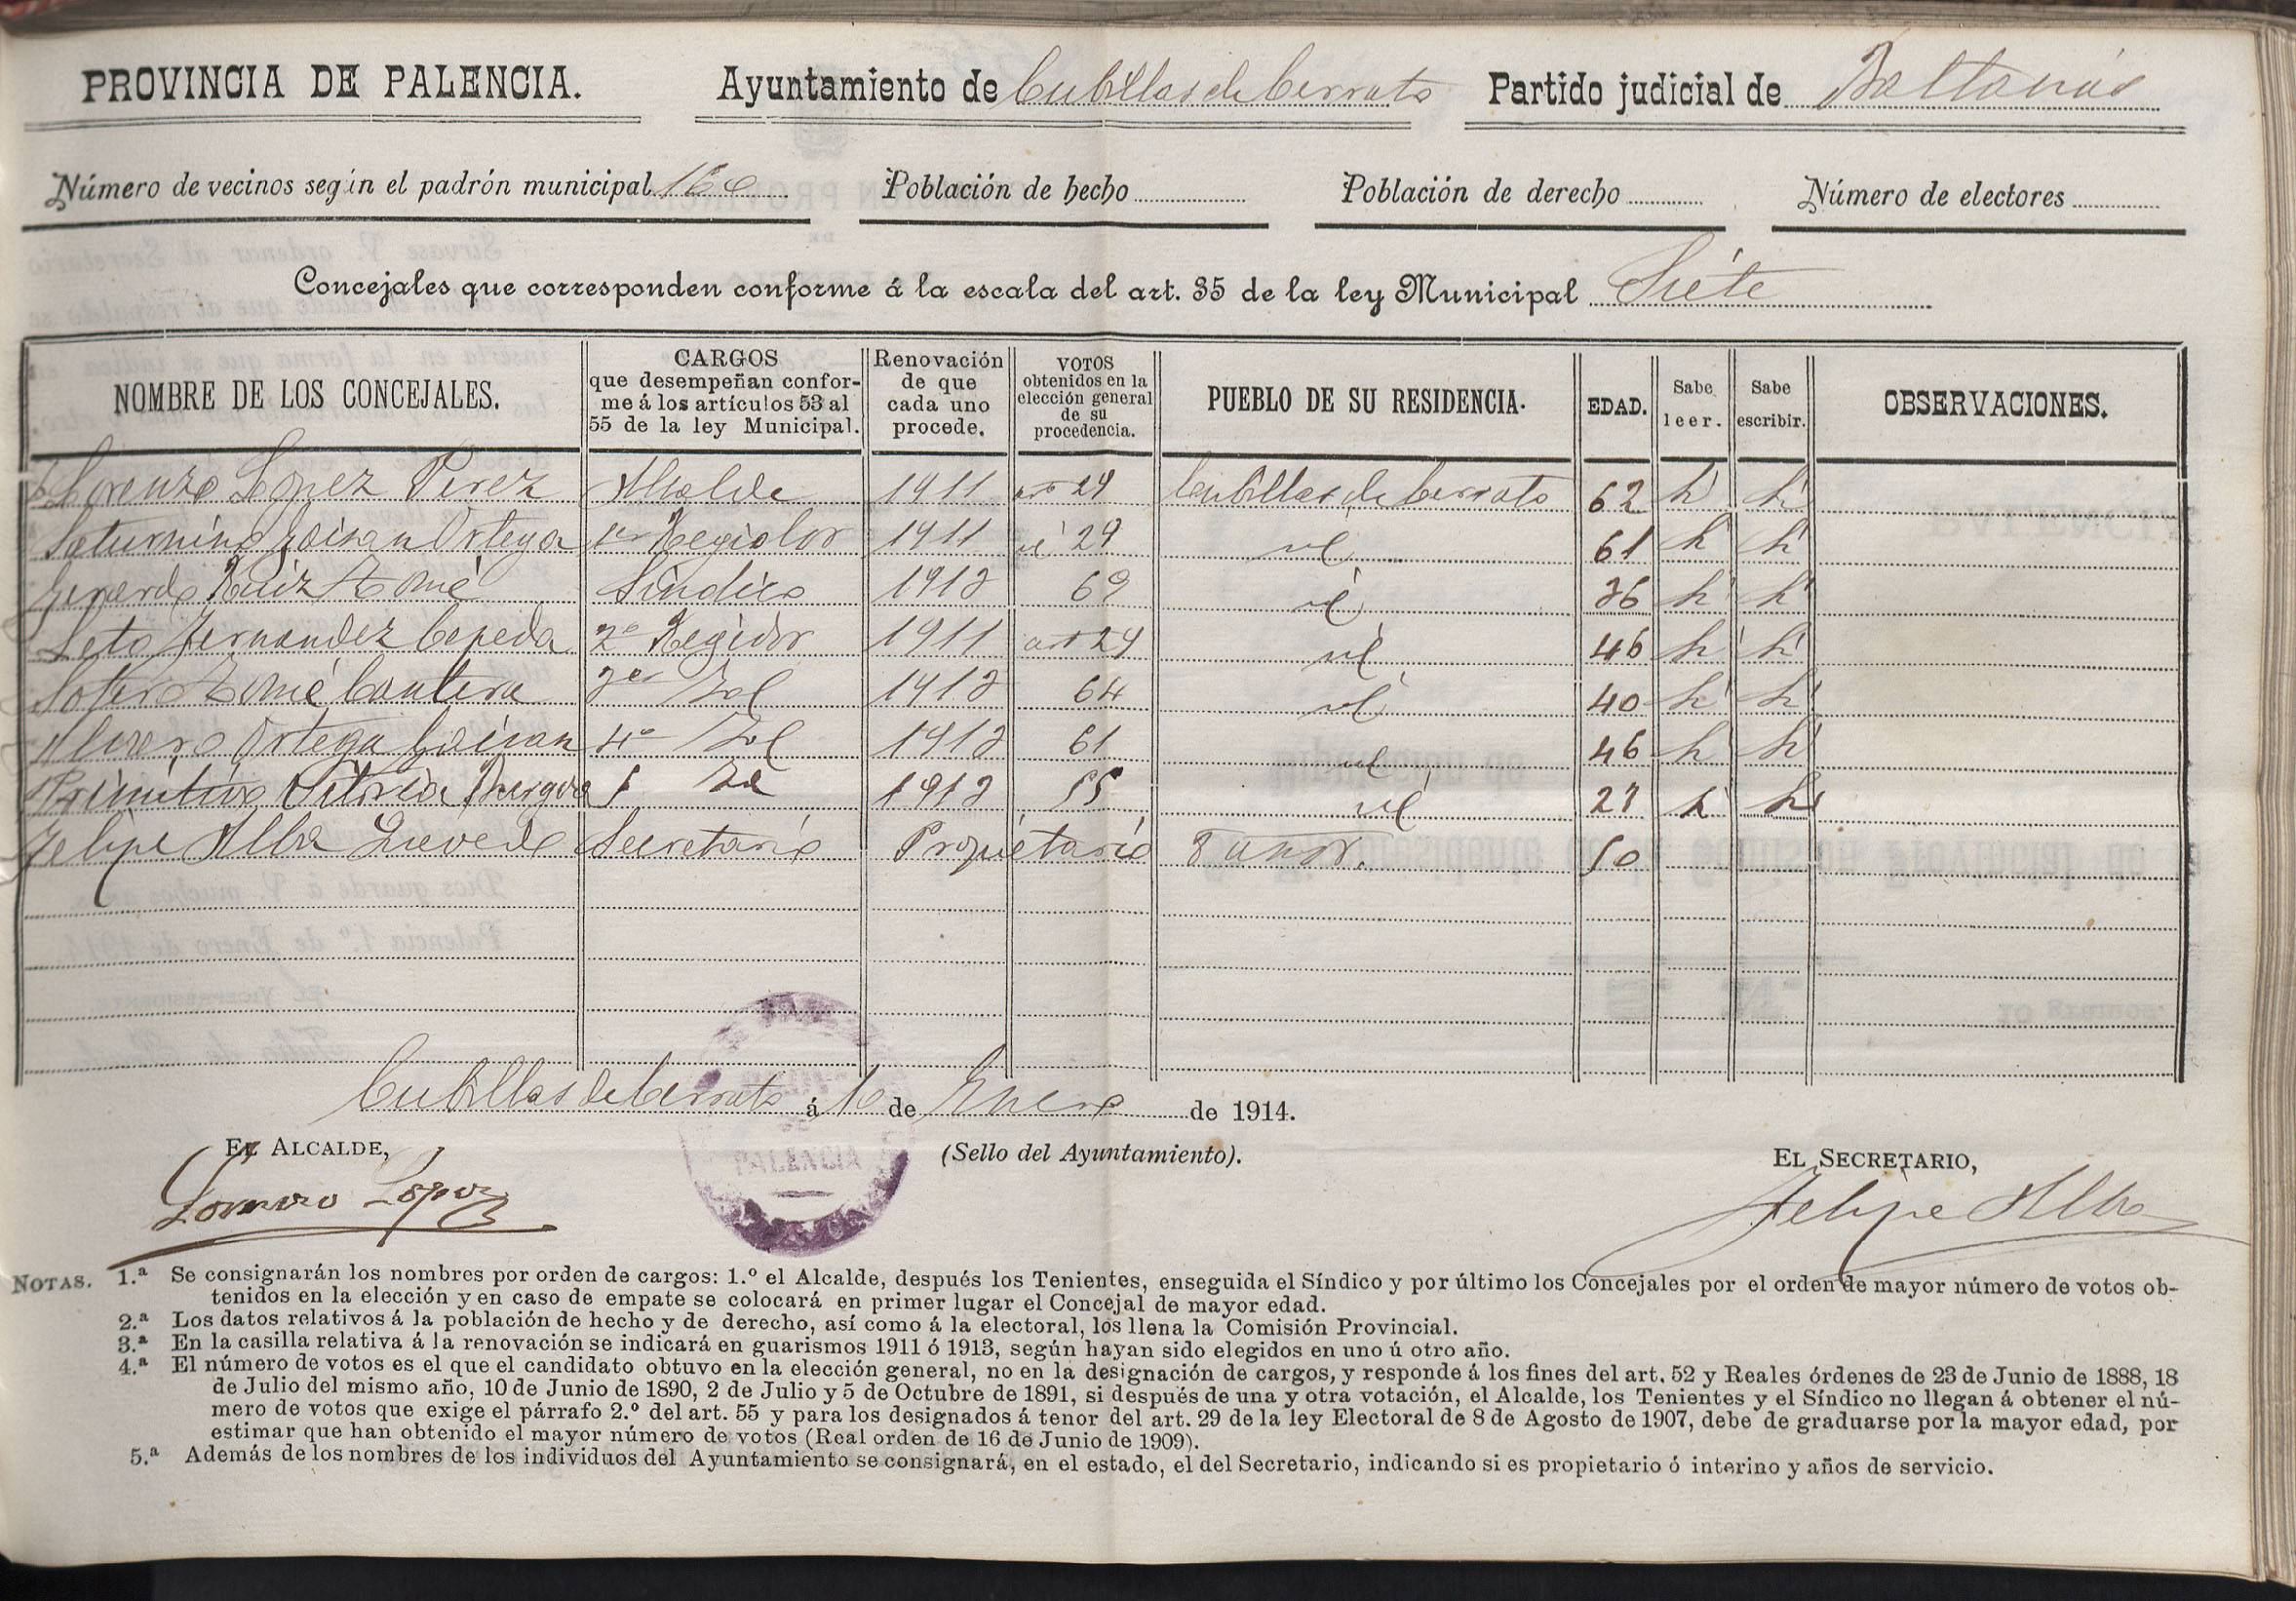 PROVINCIA DE PALENCIA. Ayuntamiento de Cubillas de Cerrato Partido judicial de Baltanás
Número de vecinos según el padrón municipal 160 Población de hecho Población de derecho Número de electores
Concejales que corresponden conforme á la escala del art. 35 de la ley Municipal Siete
NOMBRE DE LOS CONCEJALES. CARGOS que desempeñan conforme á los artículos 53 al 55 de la ley Municipal. Renovación de que cada uno procede. VOTOS obtenidos en la elección general de su procedencia. PUEBLO DE SU RESIDENCIA. EDAD. Sabe leer. Sabe escribir. OBSERVACIONES.
Lorenzo López Pérez Alcalde 1911 art 29 Cubillas de Cerrato 62 sí sí
Saturnino Ortega 1er Regidor 1911 id 29 id 61 sí sí
Gerardo Ruiz Tomé Síndico 1913 69 id 36 sí sí
Fernandez Cepeda 2º Regidor 1911 art 29 id 46 sí sí
Sotero Tomé Cantera 3er Id 1913 64 id 40 sí sí
Ortega 4º Id 1913 61 id 46 sí sí
Primitivo 5 Id 1913 55 id 27 sí sí
Felipe Alba Secretario Propietario 8 años. 50
Cubillas de Cerrato á 10 de Enero de 1914.
EL ALCALDE, (Sello del Ayuntamiento). EL SECRETARIO,
PALENCIA
Lorenzo López Felipe Alba
NOTAS. 1.ª Se consignarán los nombres por orden de cargos: 1.º el Alcalde, después los Tenientes, enseguida el Síndico y por último los Concejales por el orden de mayor número de votos ob-
tenidos en la elección y en caso de empate se colocará en primer lugar el Concejal de mayor edad.
2.ª Los datos relativos á la población de hecho y de derecho, así como á la electoral, los llena la Comisión Provincial.
3.ª En la casilla relativa á la renovación se indicará en guarismos 1911 ó 1913, según hayan sido elegidos en uno ú otro año.
4.ª El número de votos es el que el candidato obtuvo en la elección general, no en la designación de cargos, y responde á los fines del art. 52 y Reales órdenes de 23 de Junio de 1888, 18
de Julio del mismo año, 10 de Junio de 1890, 2 de Julio y 5 de Octubre de 1891, si después de una y otra votación, el Alcalde, los Tenientes y el Síndico no llegan á obtener el nú-
mero de votos que exige el párrafo 2.º del art. 55 y para los designados á tenor del art. 29 de la ley Electoral de 8 de Agosto de 1907, debe de graduarse por la mayor edad, por
estimar que han obtenido el mayor número de votos (Real orden de 16 de Junio de 1909).
5.ª Además de los nombres de los individuos del Ayuntamiento se consignará, en el estado, el del Secretario, indicando si es propietario ó interino y años de servicio.